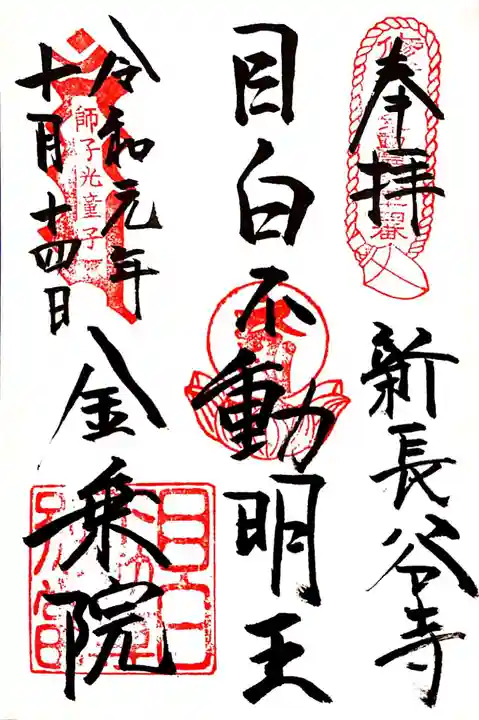 奉拝
新長谷寺
目白不動明王
令和元年
十月十四日
師子光童子
金乗院